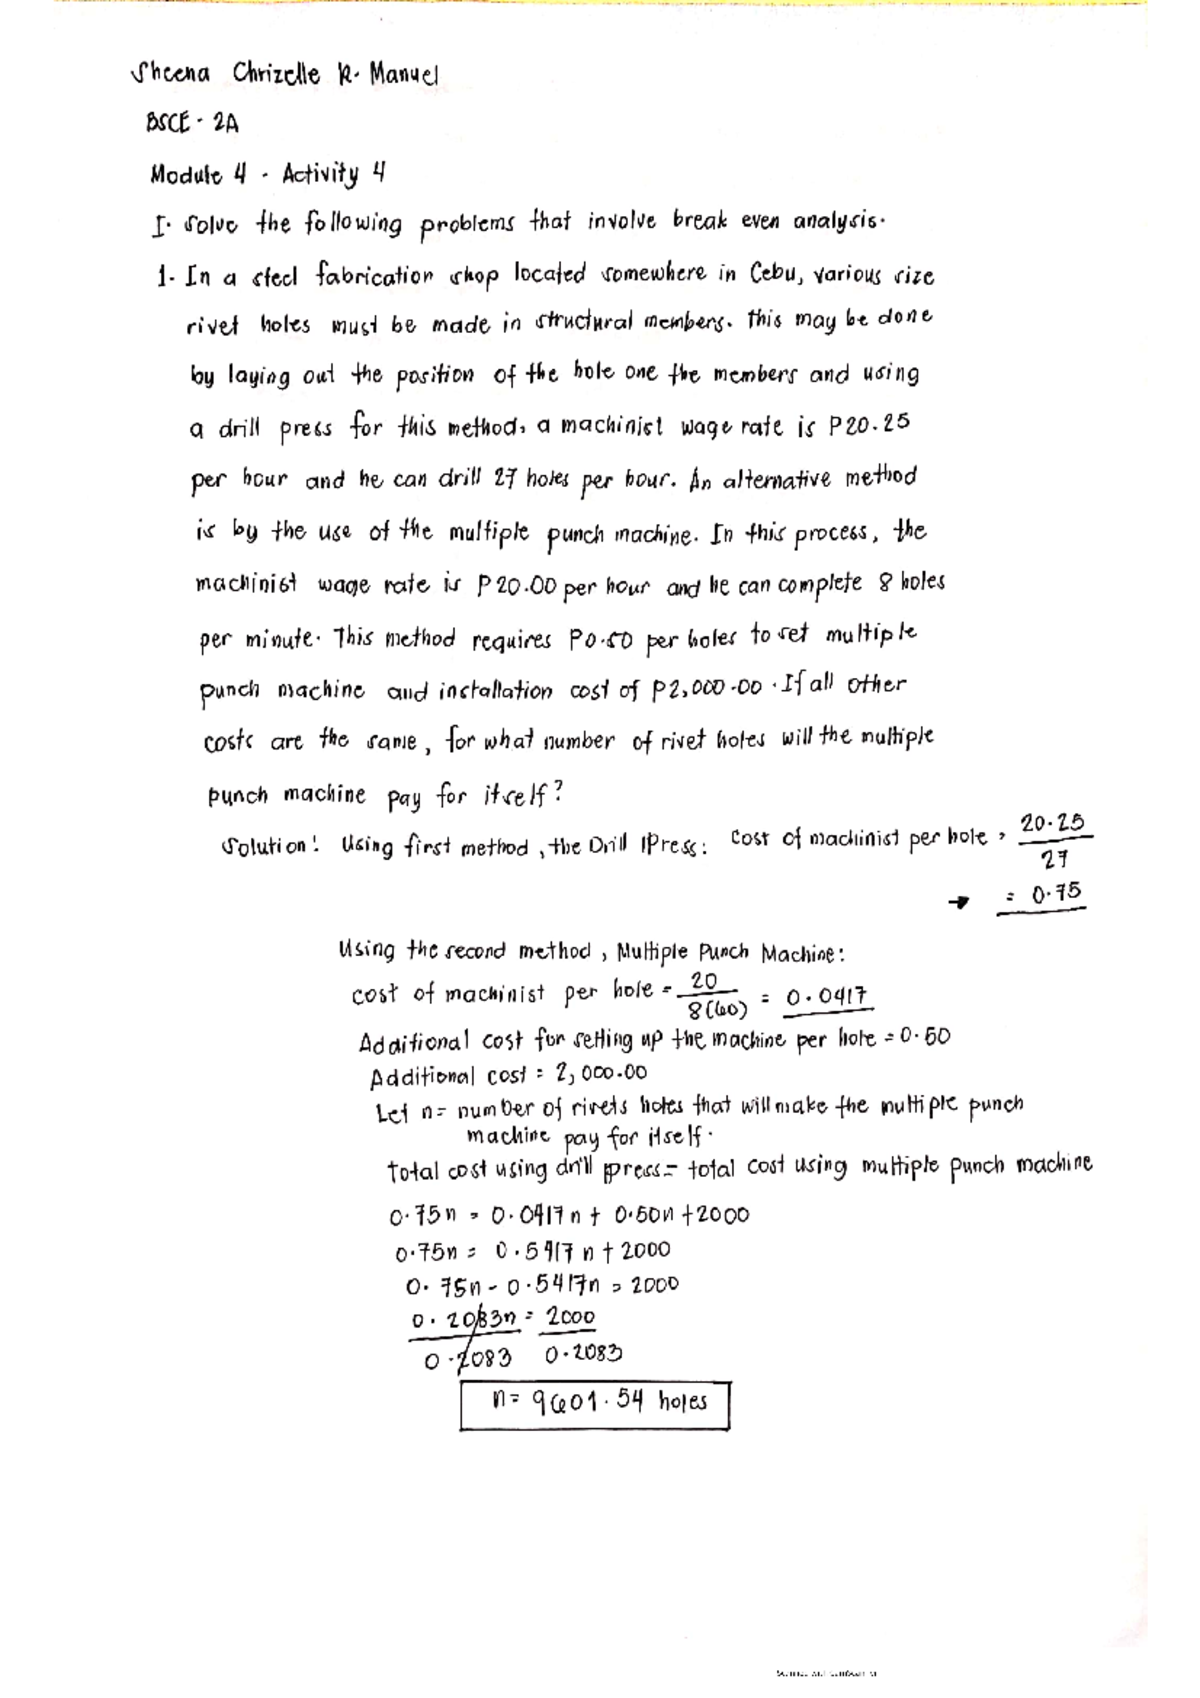 Sheena Chrizelle R. Manuel
BSCE - 2A
Module 4 - Activity 4
I. Solve the following problems that involve break even analysis.
1. In a steel fabrication shop located somewhere in Cebu, various size
rivet holes must be made in structural members. This may be done
by laying out the position of the hole one the members and using
a drill press for this method, a machinist wage rate is P20.25
per hour and he can drill 27 holes per hour. An alternative method
is by the use of the multiple punch machine. In this process, the
machinist wage rate is P20.00 per hour and he can complete 8 holes
per minute. This method requires P0.50 per holes to set multiple
punch machine and installation cost of P2,000.00. If all other
costs are the same, for what number of rivet holes will the multiple
punch machine pay for itself?
Solution: Using first method, the Drill Press: Cost of machinist per hole = 20.25
27
→ = 0.75
Using the second method, Multiple Punch Machine:
cost of machinist per hole = 20 / 8(60) = 0.0417
Additional cost for setting up the machine per hole = 0.50
Additional cost = 2,000.00
Let n = number of rivets holes that will make the multiple punch
machine pay for itself.
Total cost using drill press = total cost using multiple punch machine
0.75n = 0.0417n + 0.50n + 2000
0.75n = 0.5417n + 2000
0.75n - 0.5417n = 2000
0.2083n = 2000
0.2083 0.2083
n = 9601.54 holes